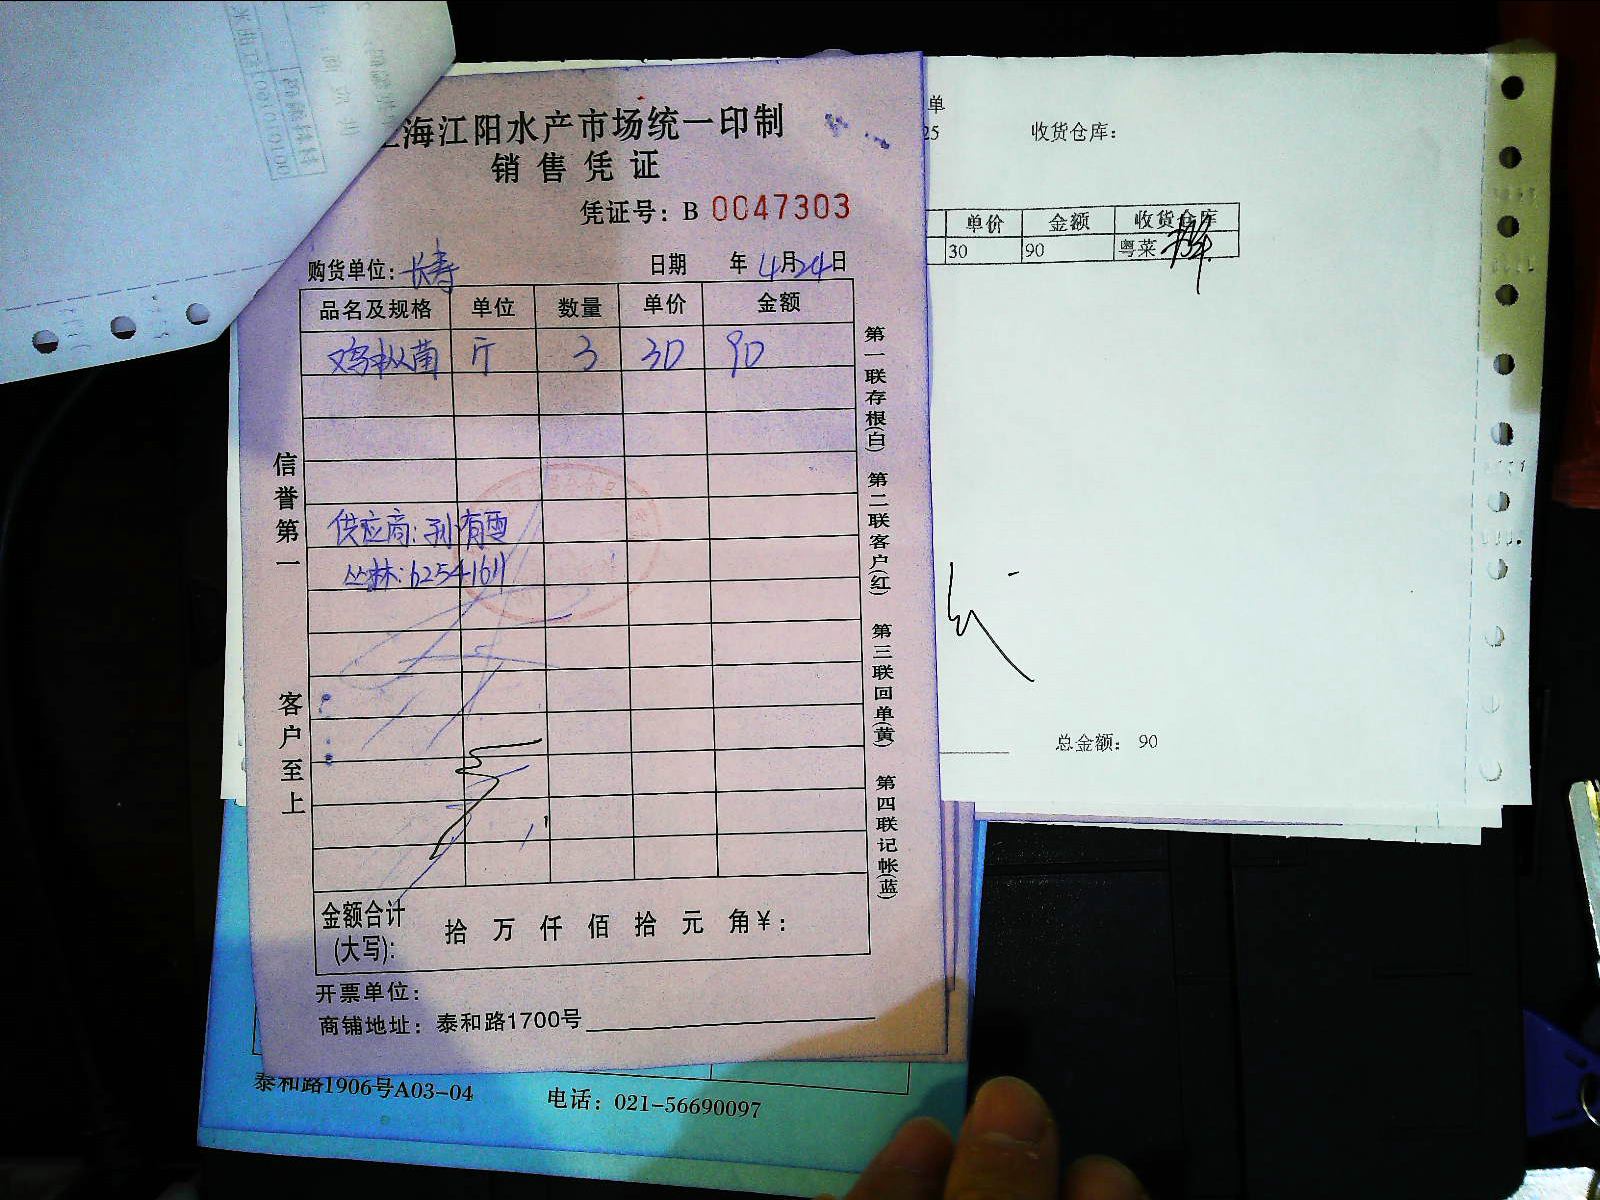 海江阳水产市场统一印制
销售凭证
凭证号：B 0047303
购货单位：长寿 日期 年4月24日
品名及规格 单位 数量 单价 金额
鸡枞菌 斤 3 30 90
供应商：孙有雪
丛林：62541611
信誉第一
客户至上
第一联存根(白) 第二联客户(红) 第三联回单(黄) 第四联记帐(蓝)
金额合计
(大写)： 拾 万 仟 佰 拾 元 角￥：
开票单位：
商铺地址：泰和路1700号
泰和路1906号A03-04 电话：021-56690097
单
25 收货仓库：
单价 金额 收货仓库
30 90 粤菜
总金额： 90